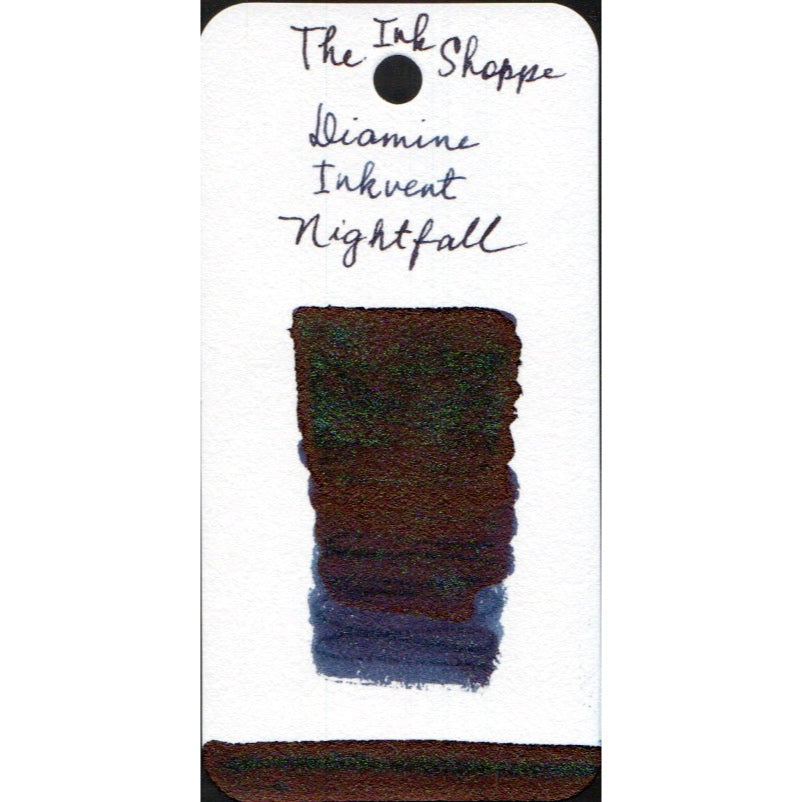 The Ink Shoppe
Diamine
Inkvent
Nightfall